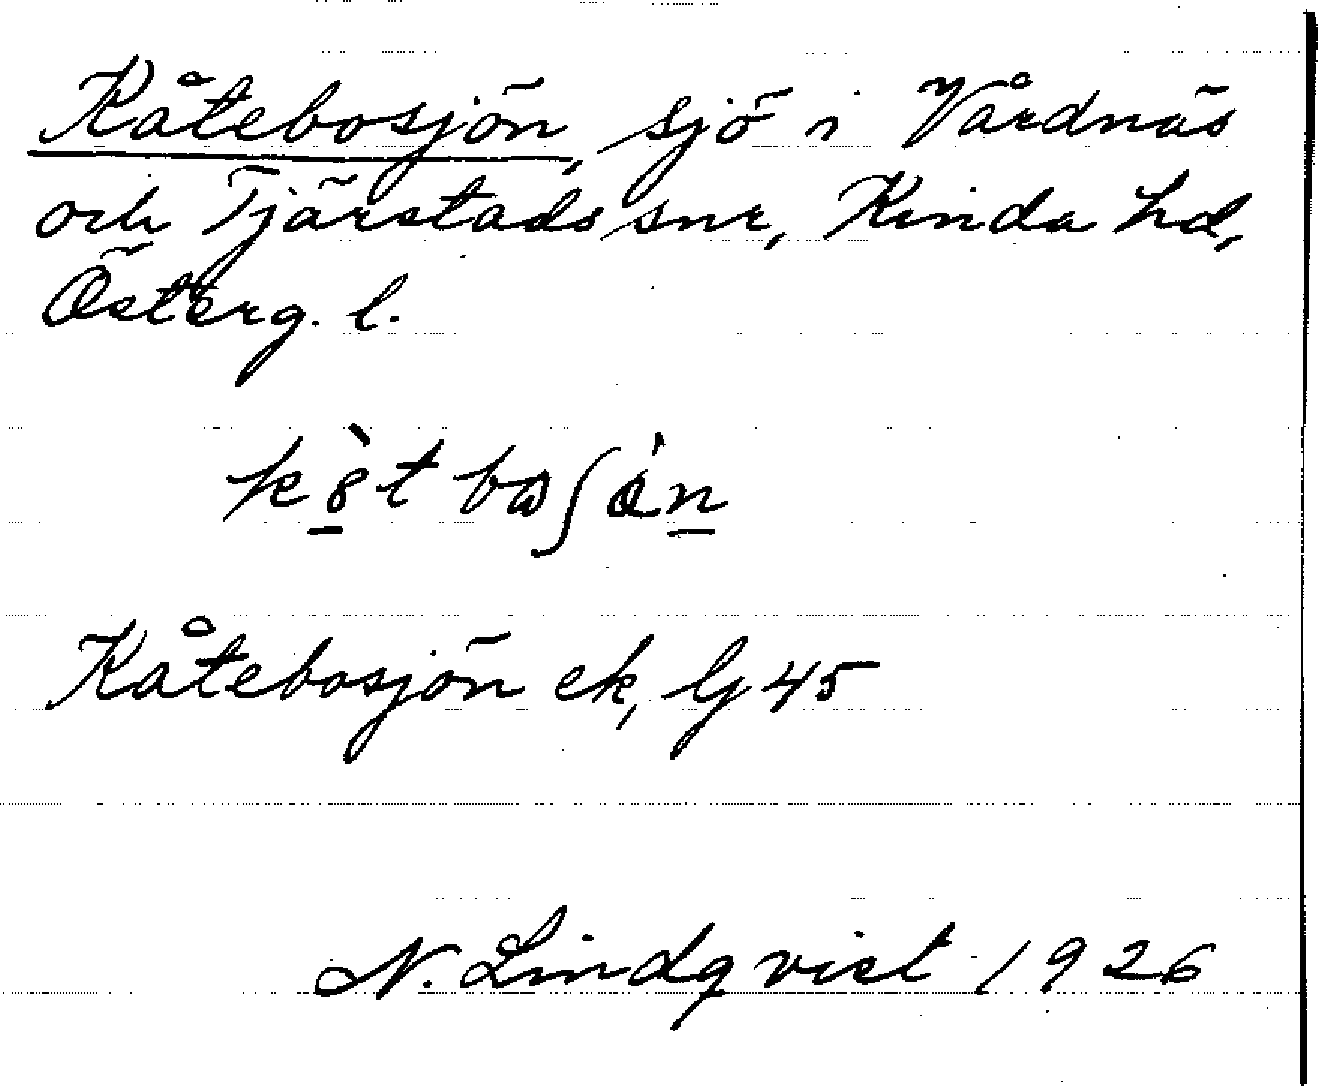 Kåtebosjön, sjö i Vårdnäs
och Tjärstads snr, Kinda hd,
Österg. l.
Kåtebosjön ek, bl 45
N. Lindqvist 1926